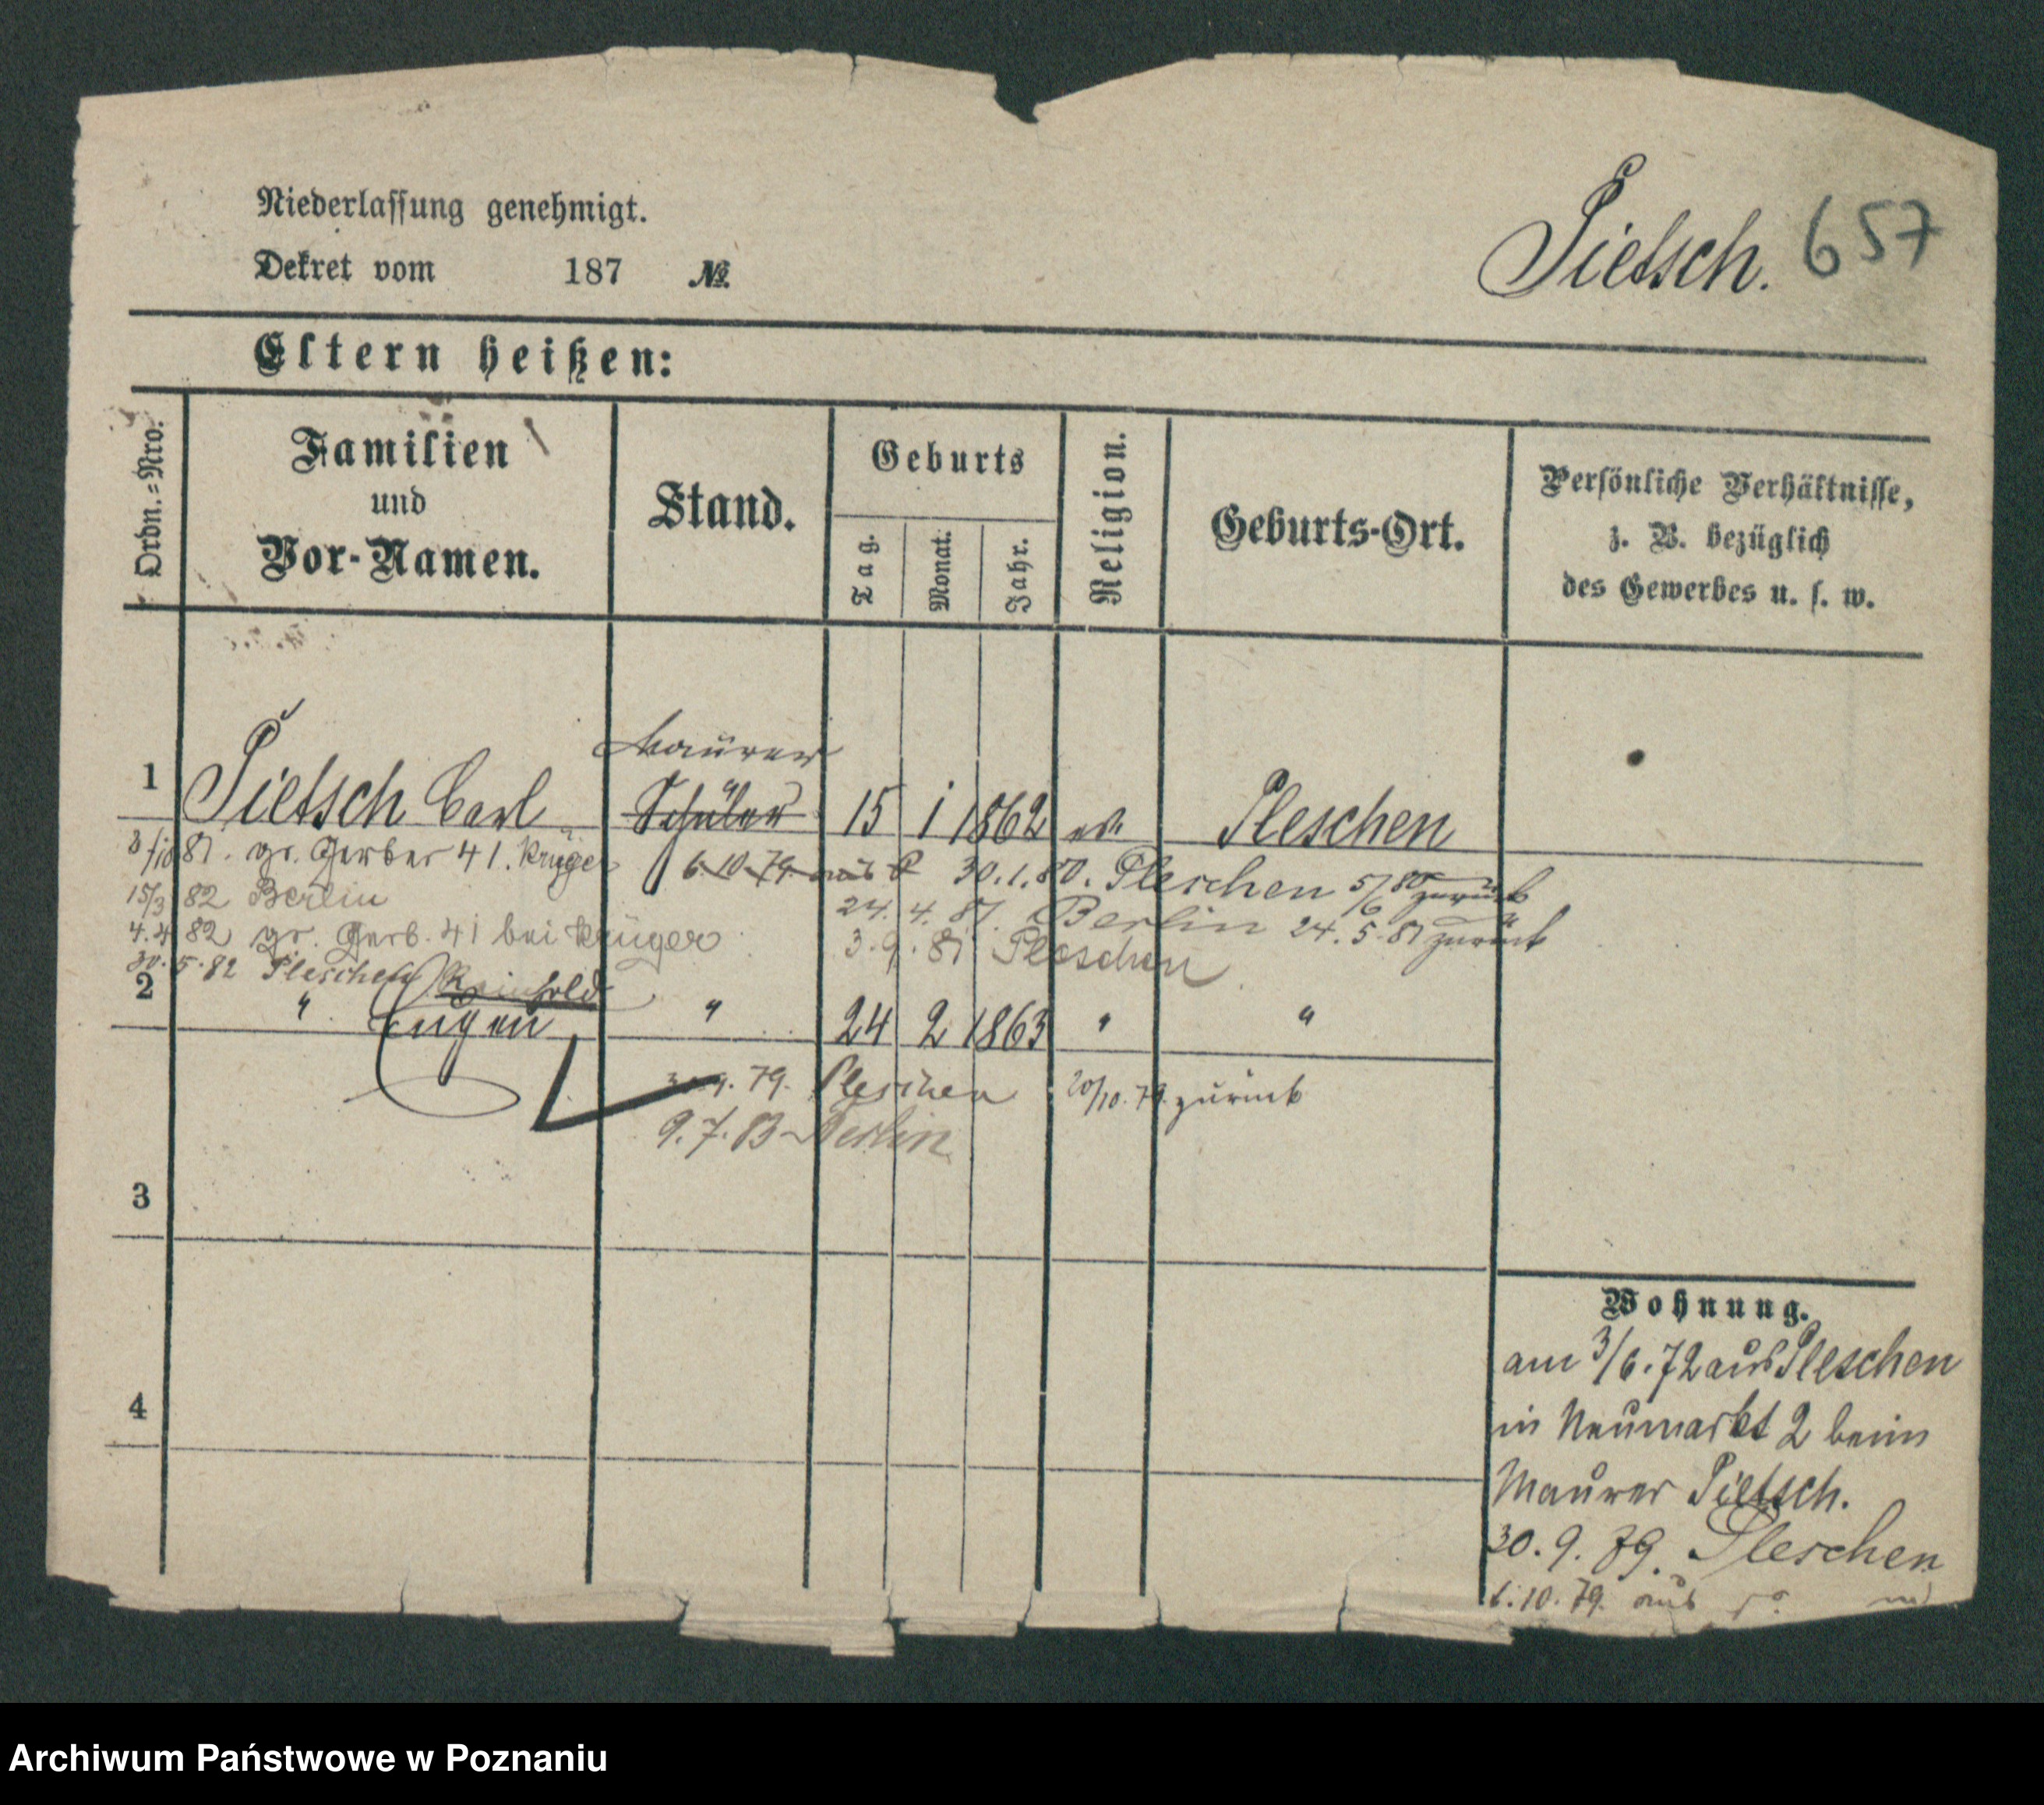 Niederlassung genehmigt.
Dekret vom 187 №.
Pietsch. 657
Eltern heißen:
Ordn.=Nro.
Familien
und
Vor-Namen.
Stand.
Geburts
Tag.
Monat.
Jahr.
Religion.
Geburts-Ort.
Persönliche Verhältnisse,
z. B. bezüglich
des Gewerbes u. s. w.
Maurer
1 Pietsch Carl Schüler 15 1 1862 ev. Pleschen
3/10 81. gr. Gerber 41. Krüger 6.10.79. aus P 30.1.80. Pleschen 5/6 80 zurück
15/3 82 Berlin 24. 4. 81. Berlin 24. 5. 81 zurück
4. 4 82 gr. Gerb. 41 bei Krüger 3. 9. 81 Pleschen
30. 5. 82 Pleschen
2 " Reinhold
Eugen " 24 2 1863 " "
79. Pleschen 20/10. 79. zurück
9. 7. 83 Berlin
3
4
Wohnung.
am 3/6. 72 aus Pleschen
in Neumarkt 2 beim
Maurer Pietsch.
30. 9. 79. Pleschen
6. 10. 79. aus